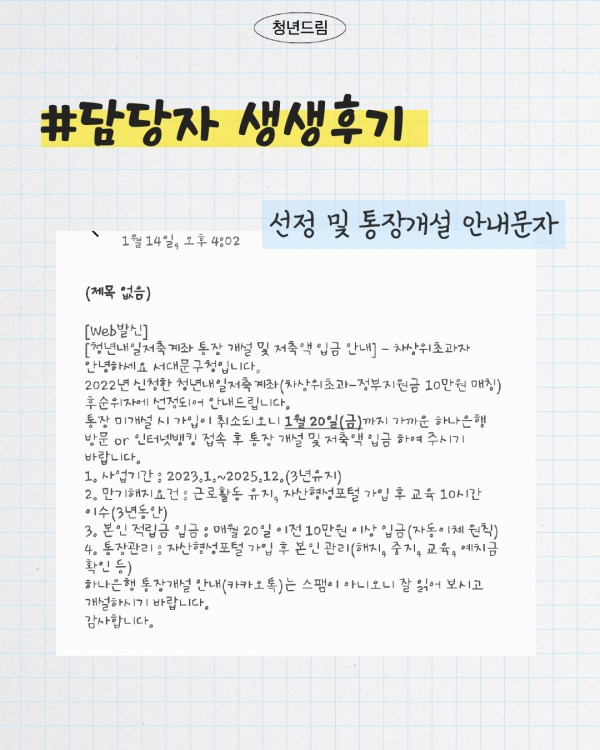 청년드림
#담당자 생생후기
선정 및 통장개설 안내문자
1월 14일, 오후 4:02
(제목 없음)
[Web발신]
[청년내일저축계좌 통장 개설 및 저축액 입금 안내] - 차상위초과자
안녕하세요 서대문구청입니다.
2022년 신청한 청년내일저축계좌(차상위초과-정부지원금 10만원 매칭)
후순위자에 선정되어 안내드립니다.
통장 미개설 시 가입이 취소되오니 1월 20일(금)까지 가까운 하나은행
방문 or 인터넷뱅킹 접속 후 통장 개설 및 저축액 입금 하여 주시기
바랍니다.
1. 사업기간 : 2023.1.~2025.12.(3년유지)
2. 만기해지요건 : 근로활동 유지, 자산형성포털 가입 후 교육 10시간
이수(3년동안)
3. 본인 적립금 입금 : 매월 20일 이전 10만원 이상 입금(자동이체 원칙)
4. 통장관리 : 자산형성포털 가입 후 본인 관리(해지, 중지, 교육, 예치금
확인 등)
하나은행 통장개설 안내(카카오톡)는 스팸이 아니오니 잘 읽어 보시고
개설하시기 바랍니다.
감사합니다.